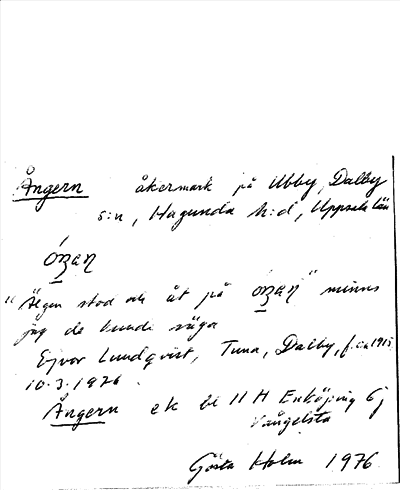 Ångern åkermark på Ubby, Dalby
s:n, Hagunda h:d, Uppsala län
óŋaɳ
"Älgen stod och åt på óŋaɳ" minns
jag de kunde säga
Ejvor Lundqvist, Tuna, Dalby, f. ca 1915
10.3.1976.
Ångern ek bl 11 H Enköping 6j
Vångelsta
Gösta Holm 1976